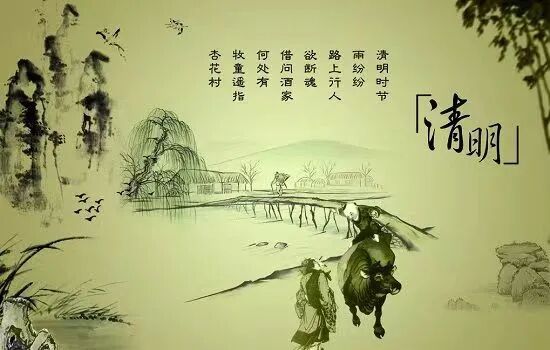 「清明」
清明时节
雨纷纷
路上行人
欲断魂
借问酒家
何处有
牧童遥指
杏花村